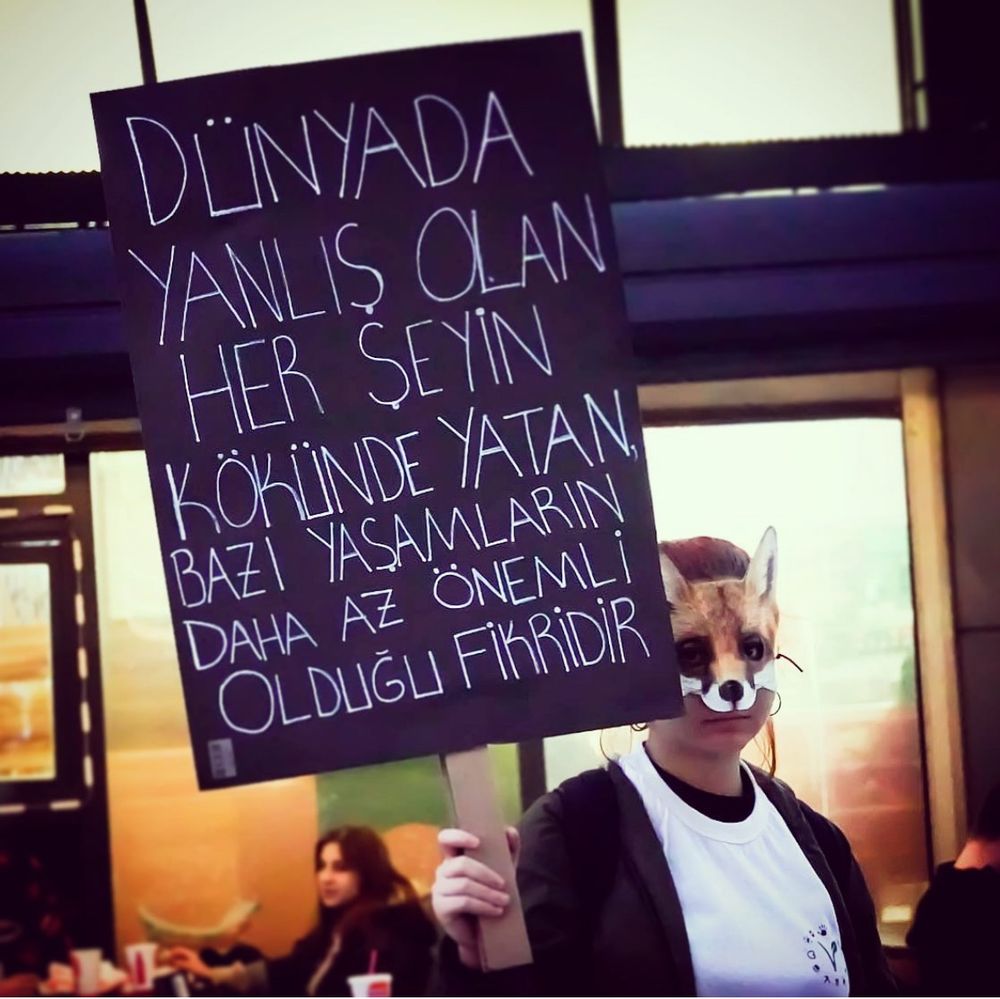 DÜNYADA
YANLIŞ OLAN
HER ŞEYİN
KÖKÜNDE YATAN,
BAZI YAŞAMLARIN
DAHA AZ ÖNEMLİ
OLDUĞU FİKRİDİR